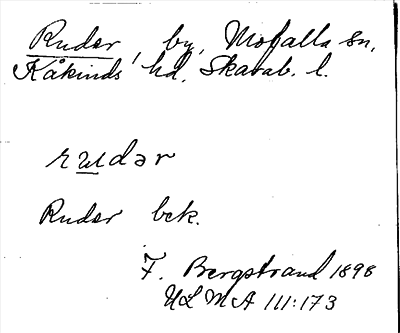 Ruder, by, Mofalla sn,
Kåkinds hd, Skarab. l.
rudər
Ruder bek.
F. Bergstrand 1898
ULMA 111:173